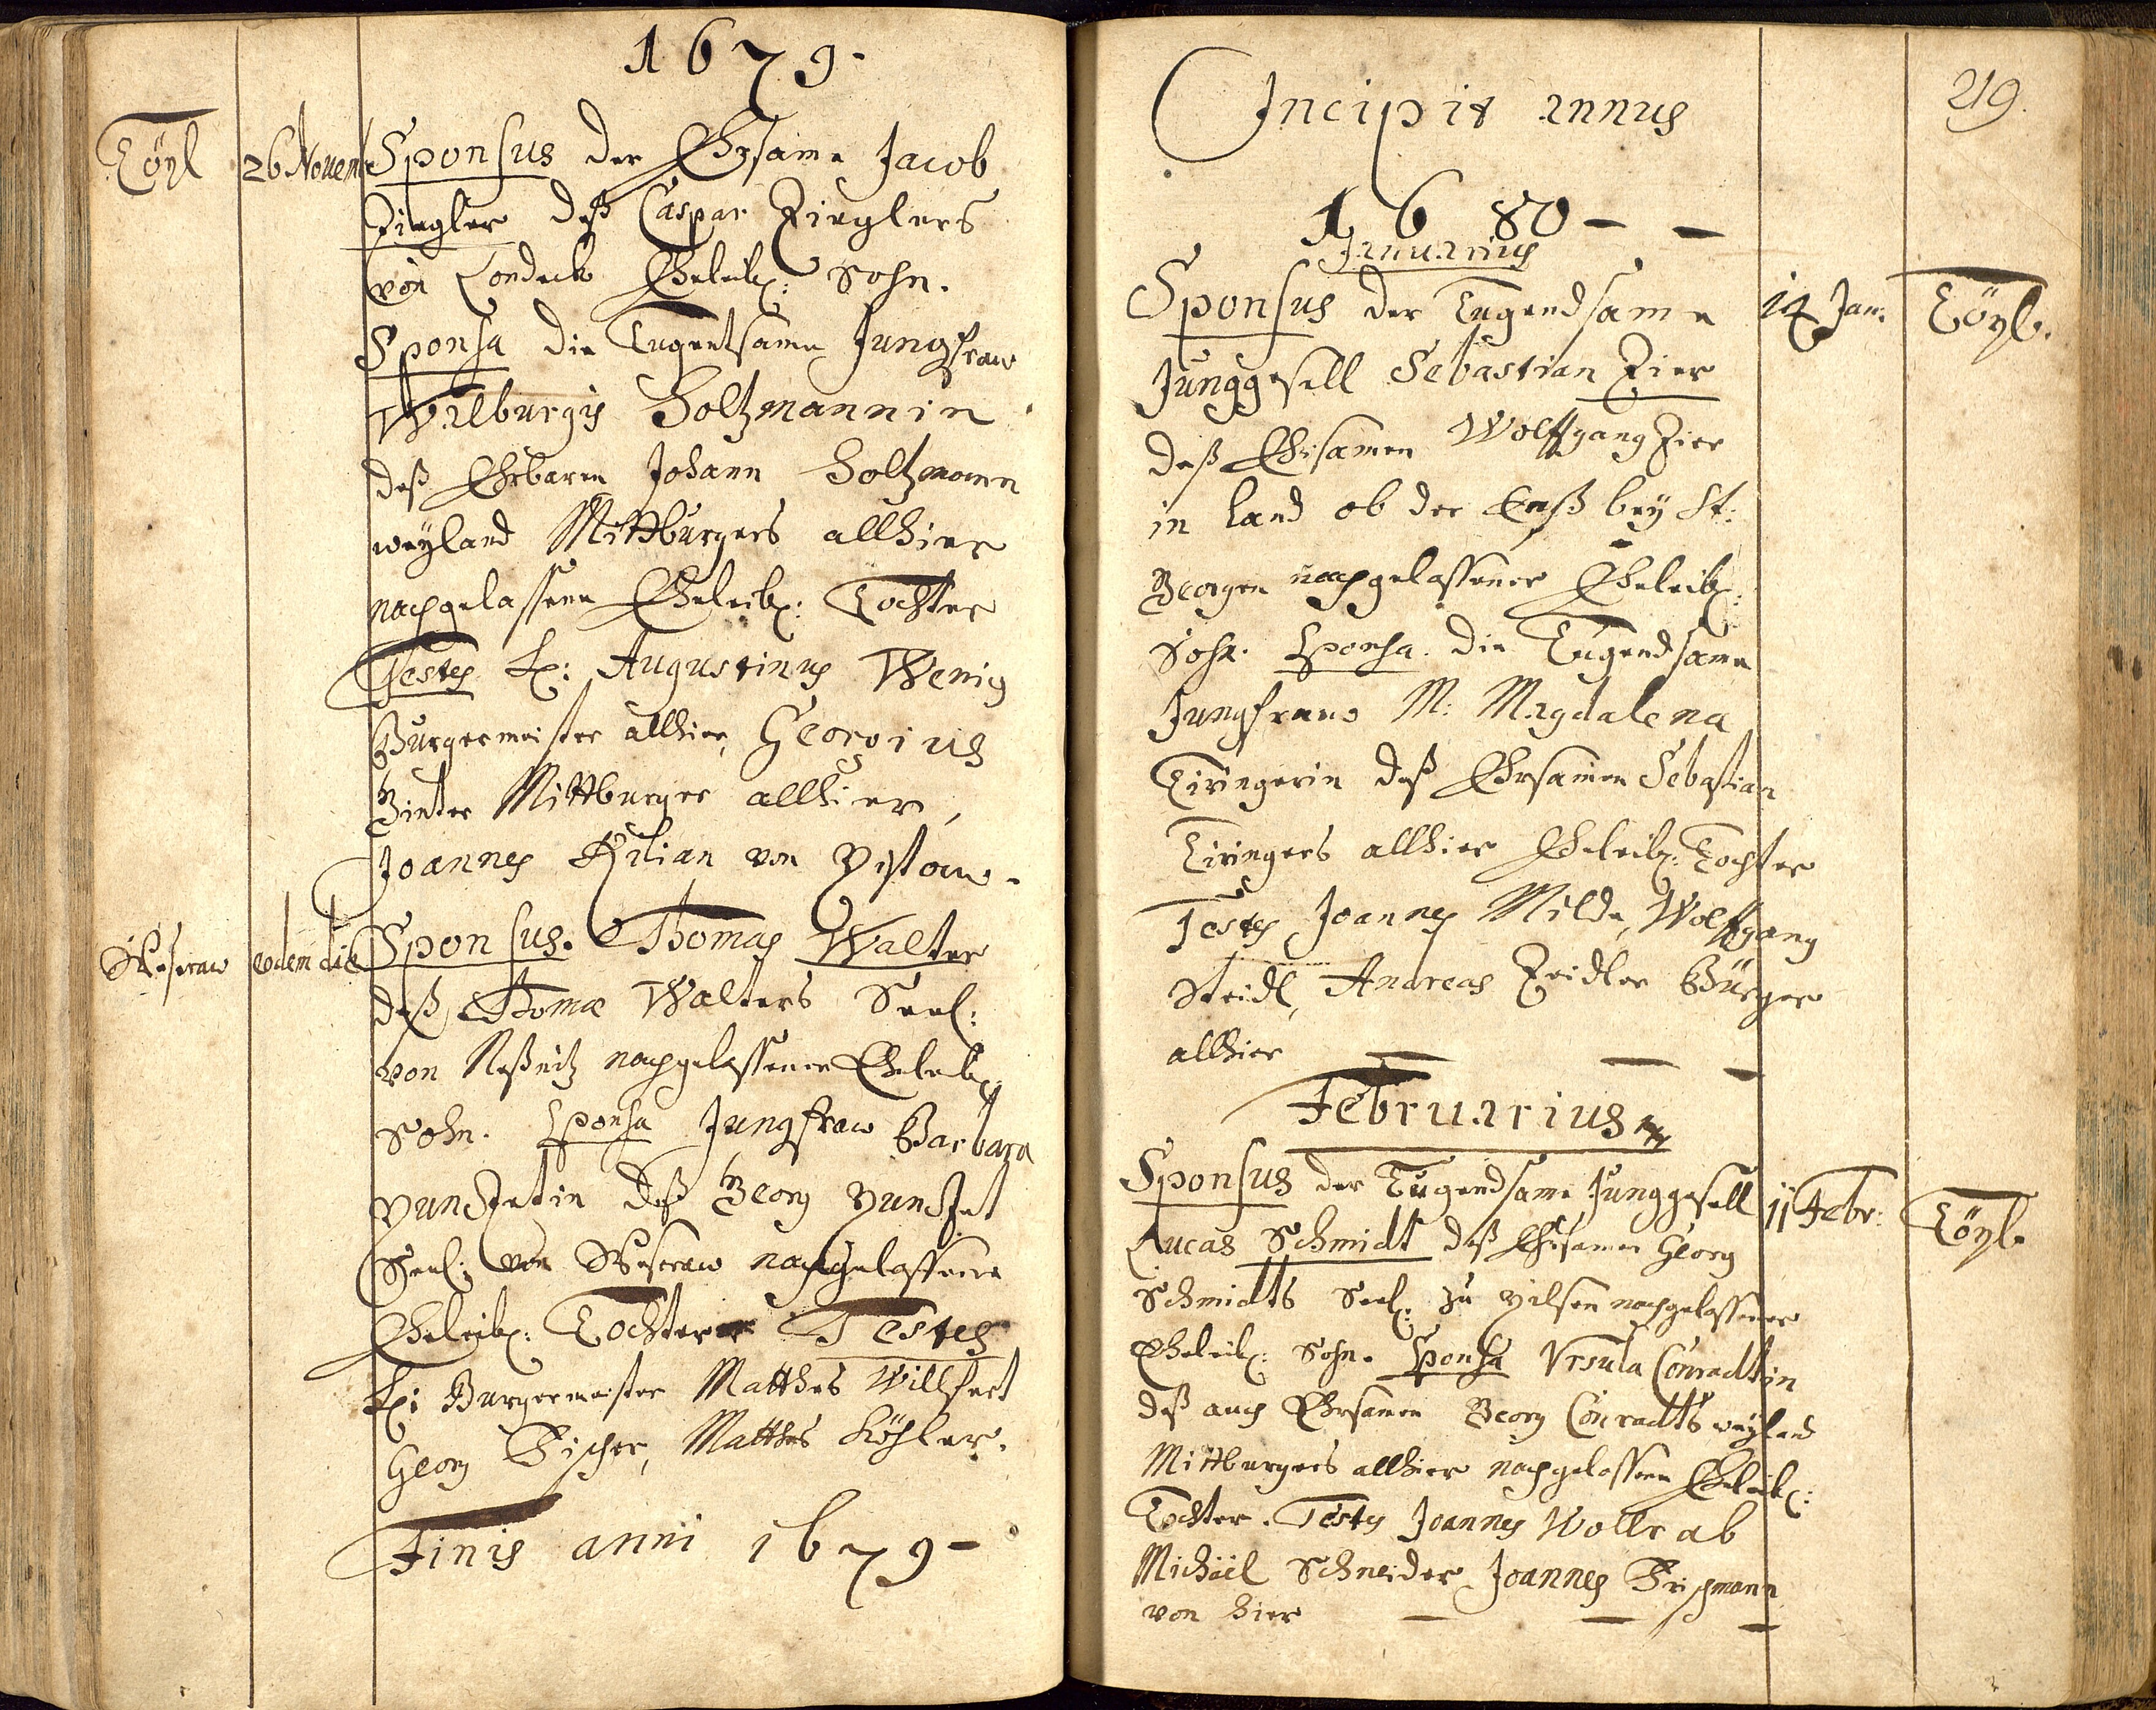 1679.
Töpl
26 Novem
Sponsus der Ehrsame Jacob
Ziegler deß Caspar Zieglers
von Landeck Eheleibl: Sohn.
Sponsa die Tugentsame Jungfraw
Walburgis Holtzmannin
deß Ehrbaren Johann Holtzmann
weyland Mittburgers allhier
nachgelassene Eheleibl: Tochter
Testes H: Augustinus Wenig
Burgermeister allhier, Georgius
Zinter Mittburger allhier,
Joannes Kilian von Pistaw.
eodem die
Sponsus. Thomas Walter
deß Thomæ Walters Seel:
von nachgelassener Eheleibl:
Sohn. Sponsa Jungfraw Barbara
deß Georg
Seel: von nachgelassene
Eheleibl: Tochter Testes
H: Burgermeister Matthes Willfert
Georg Fischer, Matthes Köhler.
Finis anni 1679-
219.
Incipit annus
1680 - -
Januarius
Sponsus der Tugendsame
14 Jan.
Töpl.
Junggesell Sebastian Zier
deß Ehrsamen Wolffgang Zier
in Land ob der Enß bey St:
Georgen nachgelassener Eheleibl:
Sohn. Sponsa. die Tugendsame
Jungfraw M: Magdalena
Tiringerin deß Ehrsamen Sebastian
Tiringers allhier Eheleibl: Tochter
Testes Joannes Milde, Wolffgang
Steidl, Andreas Zeidler Bürger
allhier
Februarius
Sponsus der Tugendsame Junggesell
11 Febr:
Töpl
Lucas Schmidt deß Ehrsamen Georg
Schmidts Seel: zu Pilsen nachgelassener
Eheleibl: Sohn. Sponsa Vrsula Conradtin
deß auch Ehrsamen Georg Conradts weyland
Mittburgers allhier nachgelassene Eheleibl:
Tochter. Testes Joannes Wollrab
Michäel Schneider Joannes
von hier